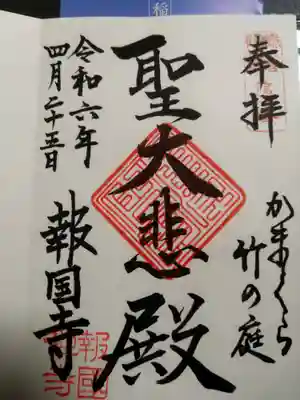 奉拝
かまくら
竹の庭
聖大悲殿
令和六年
四月二十五日
報国寺
報國寺
稲